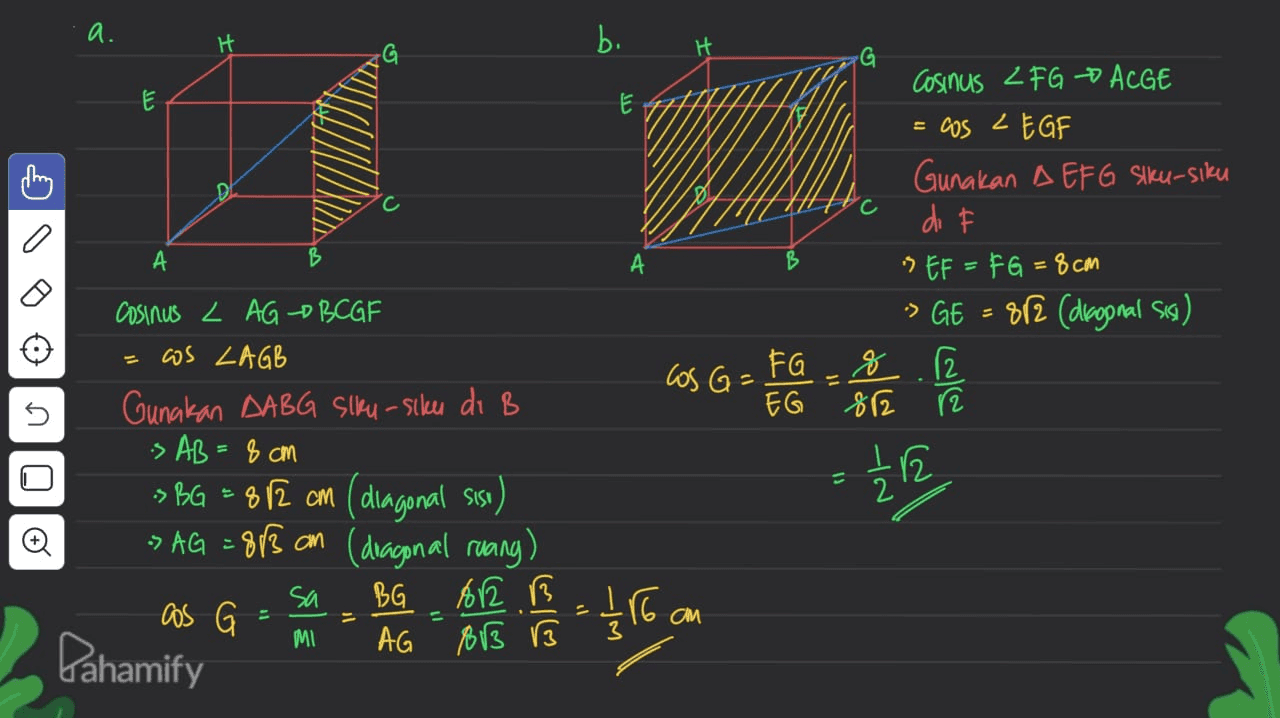 a.
H
G
E
F
D
C
A
B
Cosinus ∠ AG → BCGF
= cos ∠AGB
Gunakan ΔABG siku-siku di B
-> AB = 8 cm
-> BG = 8√2 cm (diagonal sisi)
-> AG = 8√3 cm (diagonal ruang)
cos G = sa/mi = BG/AG = 8√2/8√3 . √3/√3 = 1/3 √6 cm
b.
H
G
E
F
D
C
A
B
Cosinus ∠FG → ACGE
= cos ∠ EGF
Gunakan Δ EFG siku-siku
di F
-> EF = FG = 8 cm
-> GE = 8√2 (diagonal sisi)
cos G = FG/EG = 8/8√2 . √2/√2
= 1/2 √2
Pahamify